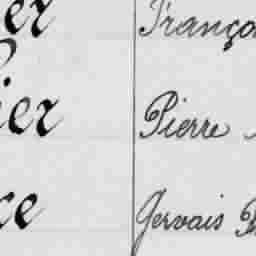 er Franço
ier Pierre
ce Gervais